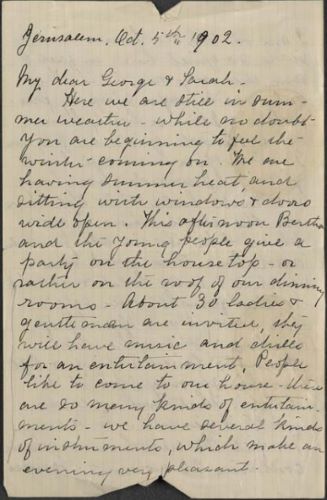 Jerusalem, Oct. 5th 1902.
My dear George & Sarah-
Here we are still in sum-
mer weather - while no doubt
you are beginning to feel the
winter coming on. We are
having summer heat, and
sitting with windows & doors
wide open. This afternoon Bertha
and the young people give a
party on the house top - or
rather on the roof of our dinning
rooms - About 30 ladies &
gentlemen are invited, they
will have music and drills
for an entertainment, People
like to come to our house - there
are so many kinds of entertain-
ments - we have several kinds
of instruments, which make an
evening very pleasant.